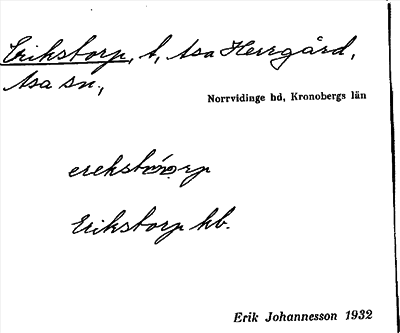 Erikstorp, t, Asa Herrgård,
Asa sn,
Norrvidinge hd, Kronobergs län
Erikstorp hb.
Erik Johannesson 1932